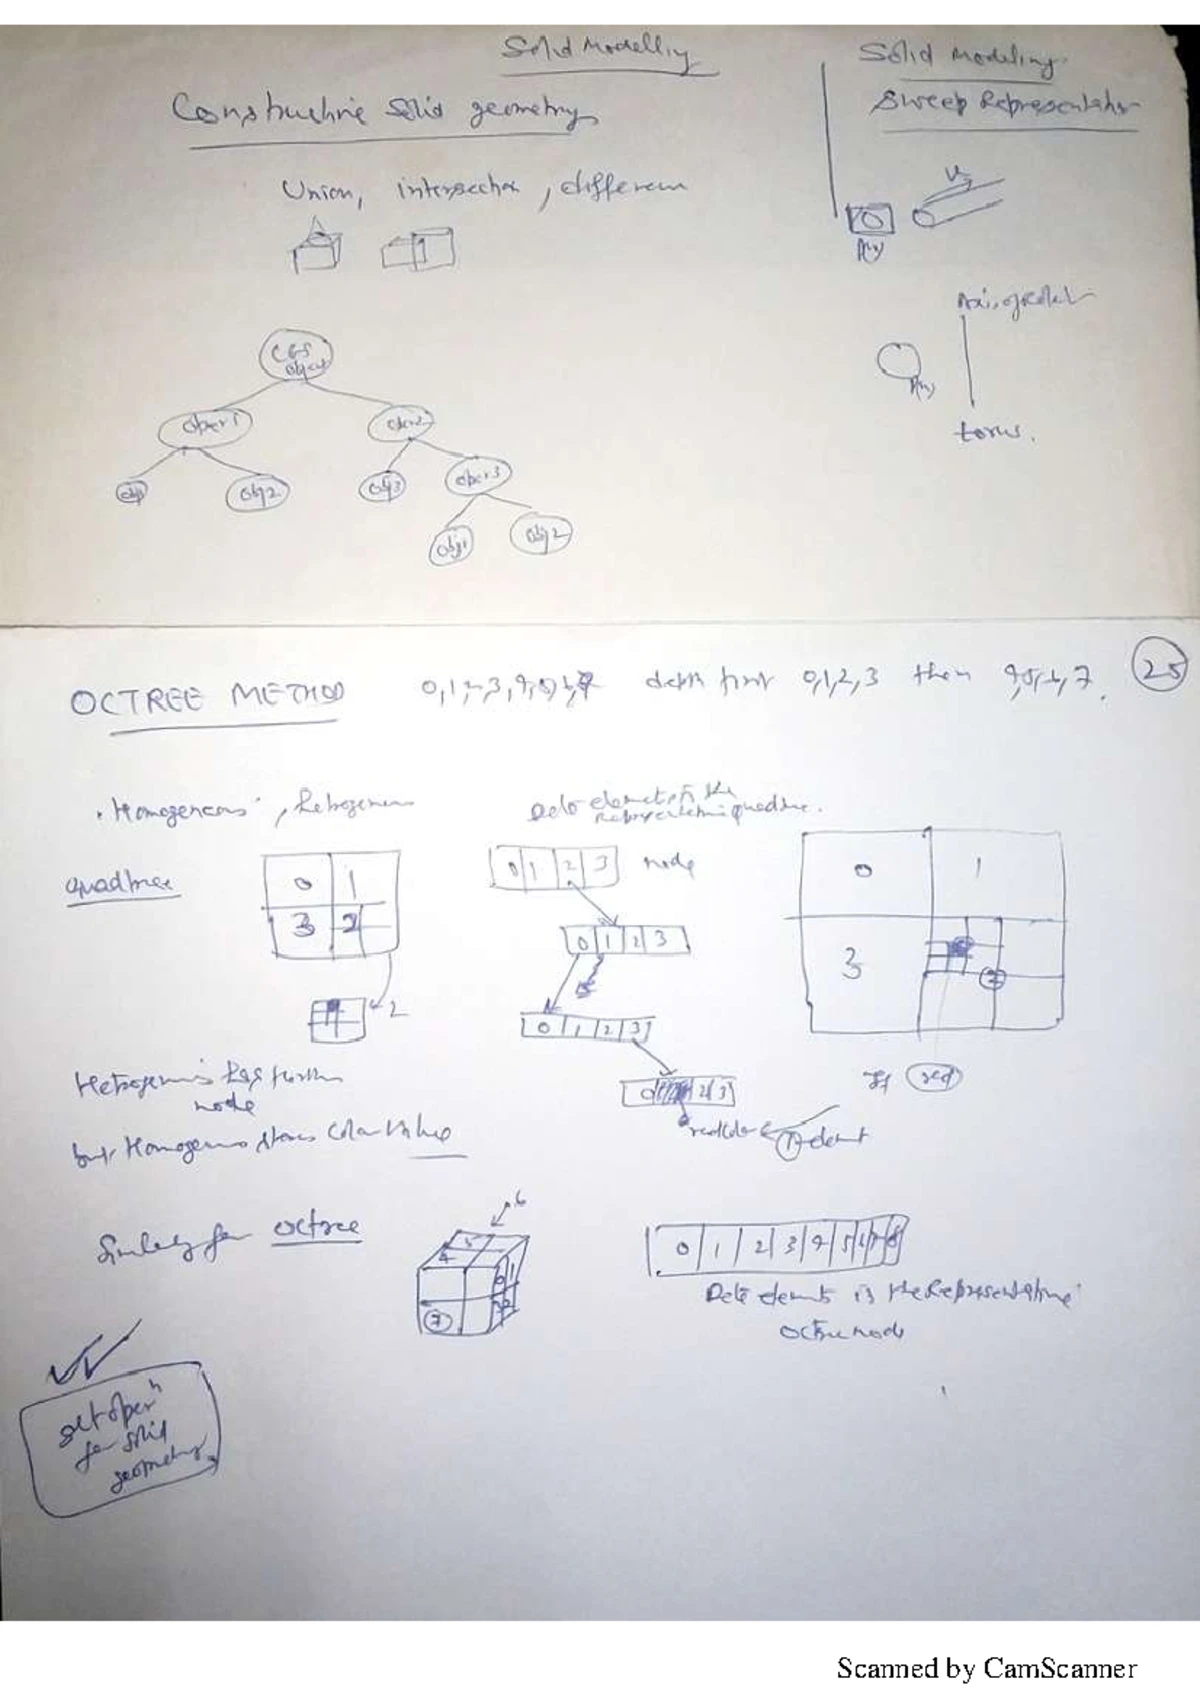 Solid Modelling
Constructive Solid geometry
Union, intersection, differenc
CGS
object
oper1
oper2
obj
obj2
obj3
oper3
obj1
obj2
Solid Modeling
Sweep Representation
P(u,v)
Axis of Rotati
P(u,v)
torus.
OCTREE METHOD 0,1,2,3,4,5,6,7 depth first 0,1,2,3 then 4,5,6,7. 25
Homogeneous, Hetrogeneous
Data elements in the
Representative quadtree.
quadtree
0 1
3 2
2
0 1 2 3 node
0 1 2 3
0 1 2 3
0 2 3
0 1
3
2
If red
Hetrogeneous has further
node
but Homogenous stores Color Value
red color 1 element
Similarly for octree
6
5
4
7
0 1 2 3 4 5 6 7 8
Data elements is the Representative
octree node
set opern
for solid
geometry
Scanned by CamScanner